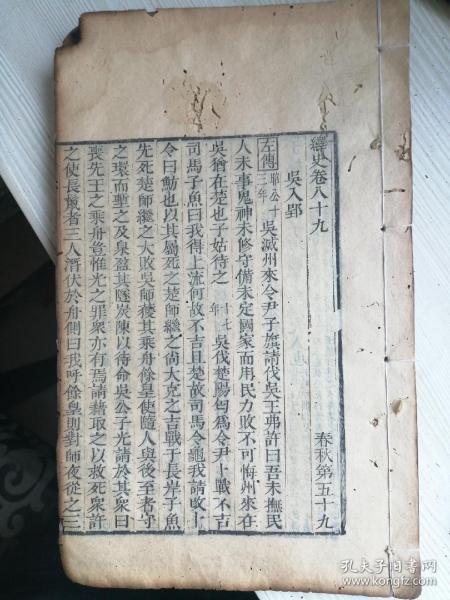 繹史卷八十九
春秋第五十九
吳入郢
左傳 昭公十三年 吳滅州來令尹子旗請伐吳王弗許曰吾未撫民
人未事鬼神未修守備未定國家而用民力敗不可悔州來在
吳猶在楚也子姑待之 十七年 吳伐楚陽匄爲令尹卜戰不吉
司馬子魚曰我得上流何故不吉且楚故司馬令龜我請改卜
令曰魴也以其屬死之楚師繼之尚大克之吉戰于長岸子魚
先死楚師繼之大敗吳師獲其乘舟餘皇使隨人與後至者守
之環而塹之及泉盈其隧炭陳以待命吳公子光請於其衆曰
喪先王之乘舟豈惟光之罪衆亦有焉請藉取之以救死衆許
之使長鬣者三人潛伏於舟側曰我呼餘皇則對師夜從之三
孔夫子旧书网